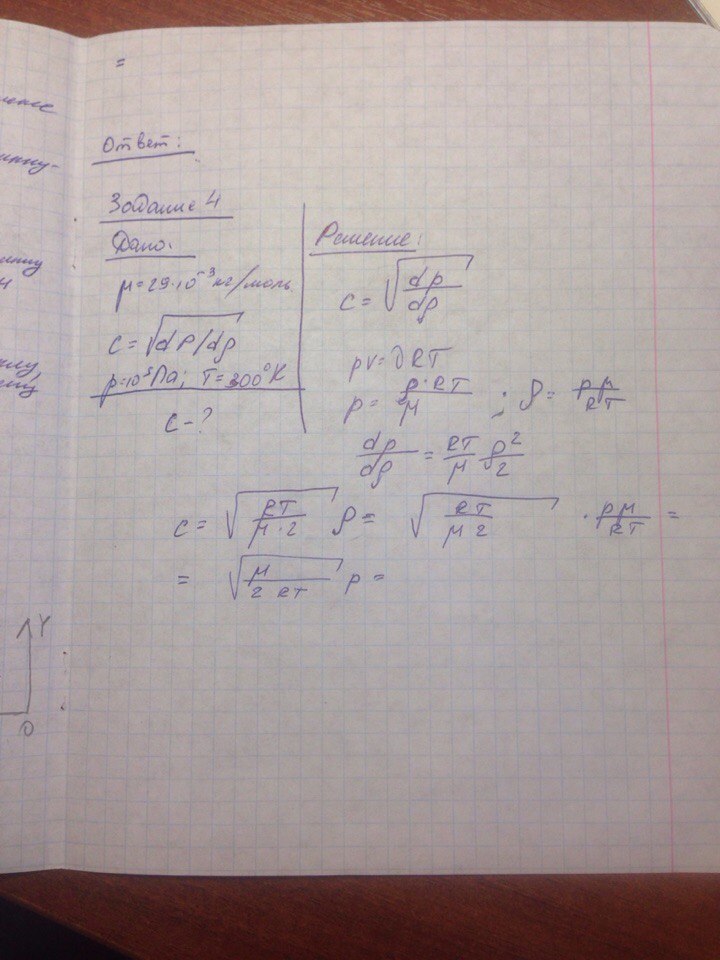 =
Ответ:
Задание 4
Дано:
μ=29·10⁻³ кг/моль
c=√(dP/dρ)
p=10⁵Па; T=300°K
c-?
Решение:
c = √(dp/dρ)
pV = νRT
p = ρ·RT/μ ; ρ = pμ/RT
dp/dρ = RT/μ ρ²/2
c = √(RT/μ·2) ρ = √(RT/μ2) · pμ/RT =
= √(μ/2RT) p =
Y
0